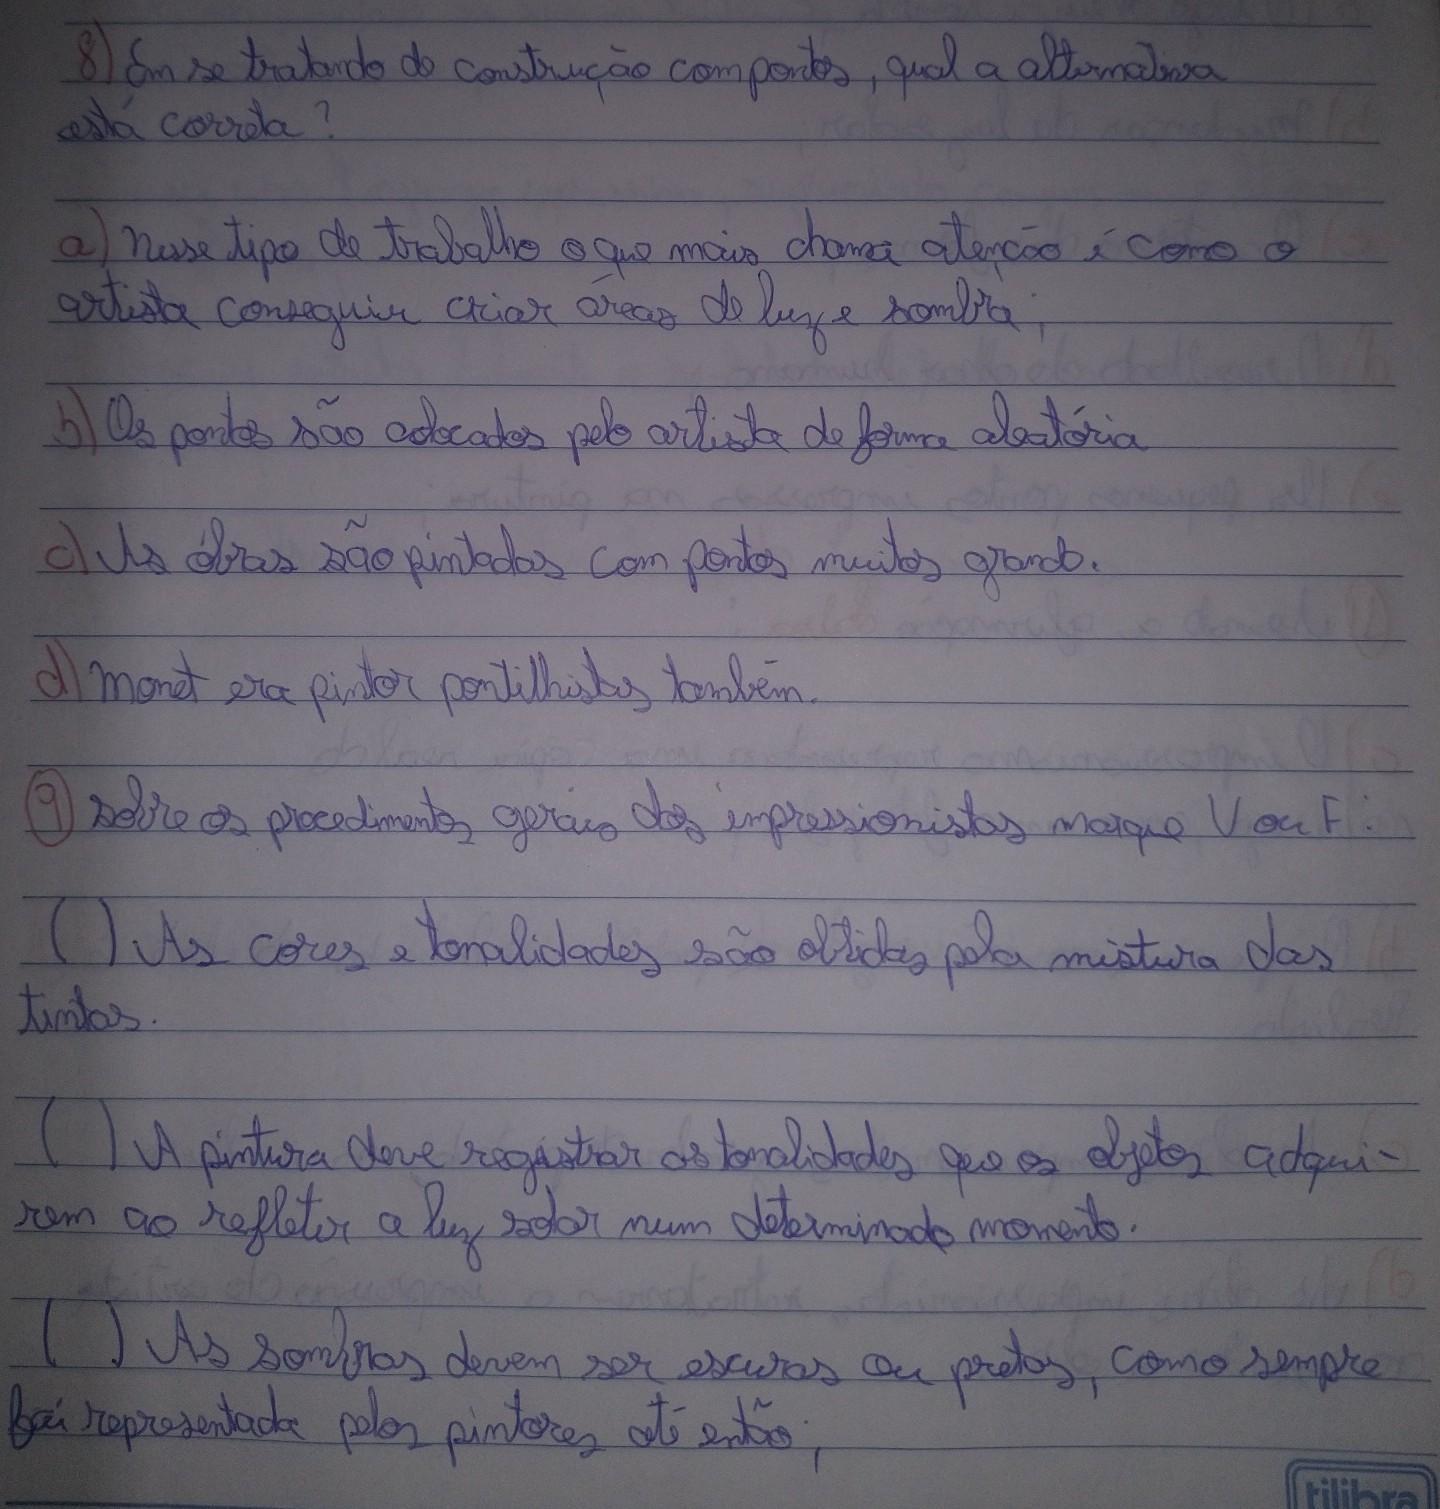 8) Em se tratando de construção com pontos, qual a alternativa
está correta?
a) Nesse tipo de trabalho o que mais chama atenção é como o
artista conseguiu criar áreas de luz e sombra;
b) Os pontos são colocados pelo artista de forma aleatória
c) As obras são pintadas com pontos muitos grande.
d) Monet era pintor pontilhistas também.
9) Sobre os procedimentos gerais dos impressionistas marque V ou F:
( ) As cores e tonalidades são obtidas pela mistura das
tintas.
( ) A pintura deve registrar as tonalidades que os objetos adqui-
rem ao refletir a luz solar num determinado momento.
( ) As sombras devem ser escuras ou pretas, como sempre
foi representada pelos pintores até então;
tilibra